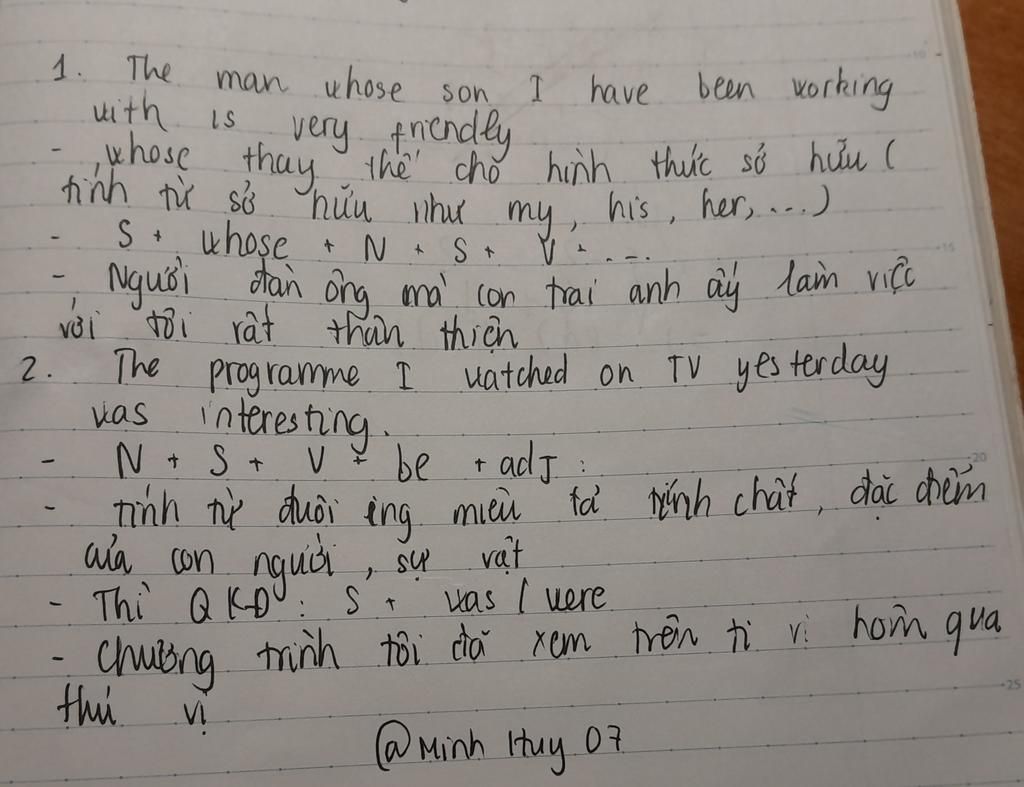 1. The man whose son I have been working
with is very friendly
- , whose thay thế cho hình thức sở hữu (
tính từ sở hữu như my, his, her, ...)
- S + whose + N + S + V + ....
- Người đàn ông mà con trai anh ấy làm việc
với tôi rất thân thiện
2. The programme I watched on TV yesterday
was interesting.
- N + S + V + be + adj :
- tính từ đuôi ing miêu tả tính chất, đặc điểm
của con người, sự vật
- Thì QKĐ : S + was / were
- Chương trình tôi đã xem trên ti vi hôm qua
thú vị
@Minh Huy 07
10
15
20
25